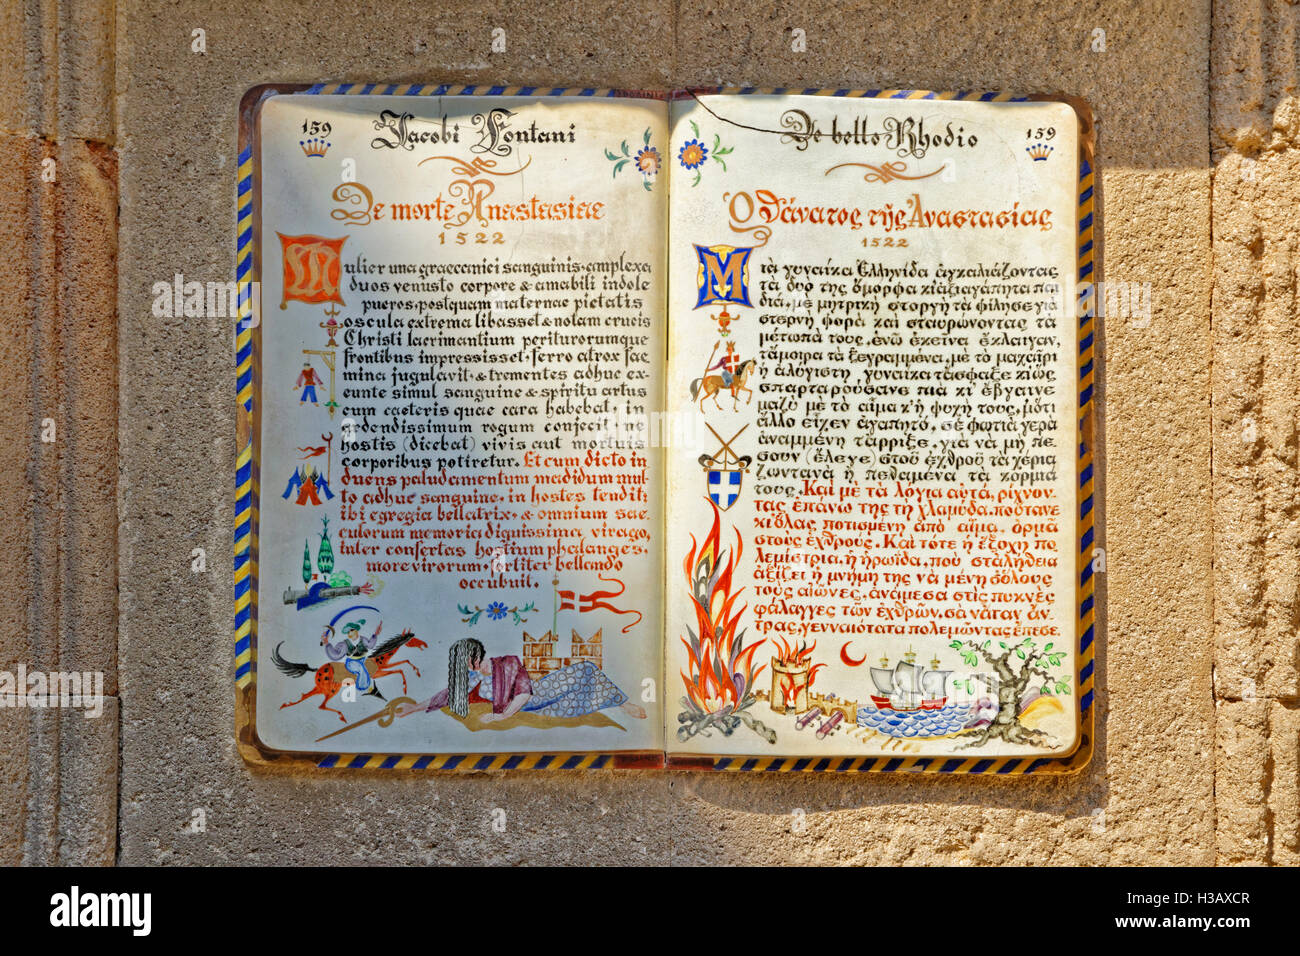 159
Jacobi Fontani
De morte Anastasiae
1522
Mulier una graecanici sanguinis, amplexa
duos venusto corpore & amabili indole
pueros, postquam maternae pietatis
oscula extrema libasset & nolam crucis
Christi lacrimantium periturorumque
frontibus impressisset, ferro atrox fae
mina jugulavit, & trementes adhuc ex-
eunte simul sanguine & spiritu artus
cum caeteris quae cara habebat, in
ardendissimum rogum conjecit, ne
hostis (dicebat) vivis aut mortuis
corporibus potiretur. Et cum dicto in
duens paludamentum madidum mul-
to adhuc sanguine, in hostes tendit,
ibi egregia bellatrix, & omnium sae-
culorum memoria dignissima virago,
inter confertas hostium phalanges,
more virorum, fortiter bellando
occubuit.
De bello Rhodio
159
Ὁ θάνατος τῆς Ἀναστασίας
1522
Μιὰ γυναίκα Ἑλληνίδα ἀγκαλιάζοντας
τὰ δυό της ὄμορφα κι ἀξιαγάπητα παι
διά, μὲ μητρικὴ στοργὴ τὰ φίλησε γιὰ
στερνὴ φορὰ καὶ σταυρώνοντας τὰ
μέτωπά τους, ἐνῶ ἐκεῖνα ἔκλαιγαν,
τἄμοιρα τὰ ξεγραμμένα, μὲ τὸ μαχαῖρι
ἡ ἀλύγιστη γυναίκα τἄσφαξε κι ὅπως
σπαρταροῦσανε πιὰ κι ἔβγαινε
μαζὺ μὲ τὸ αἷμα κ' ἡ ψυχή τους, μ' ὅτι
ἄλλο εἶχεν ἀγαπητό, σὲ φωτιὰ γερὰ
ἀναμμένη τἄρριξε, γιὰ νὰ μὴ πέ-
σουν (ἔλεγε) στοῦ ἐχθροῦ τὰ χέρια
ζωντανὰ ἢ πεθαμένα τὰ κορμιά
τους. Καὶ μὲ τὰ λόγια αὐτά, ρίχνον-
τας ἐπάνω της τὴ χλαμύδα, ποὔτανε
κιόλας ποτισμένη ἀπὸ αἷμα, ὁρμᾶ
στοὺς ἐχθρούς. Καὶ τότε ἡ ἔξοχη πο
λεμίστρια, ἡ ἡρωίδα, ποὺ στἀλήθεια
ἀξίζει ἡ μνήμη της νὰ μένῃ σ' ὅλους
τοὺς αἰῶνες, ἀνάμεσα στὶς πυκνὲς
φάλαγγες τῶν ἐχθρῶν, σὰ νἆταν ἄν-
τρας, γενναιότατα πολεμῶντας ἔπεσε.
a
alamy
Image ID: H3AXCR
www.alamy.com